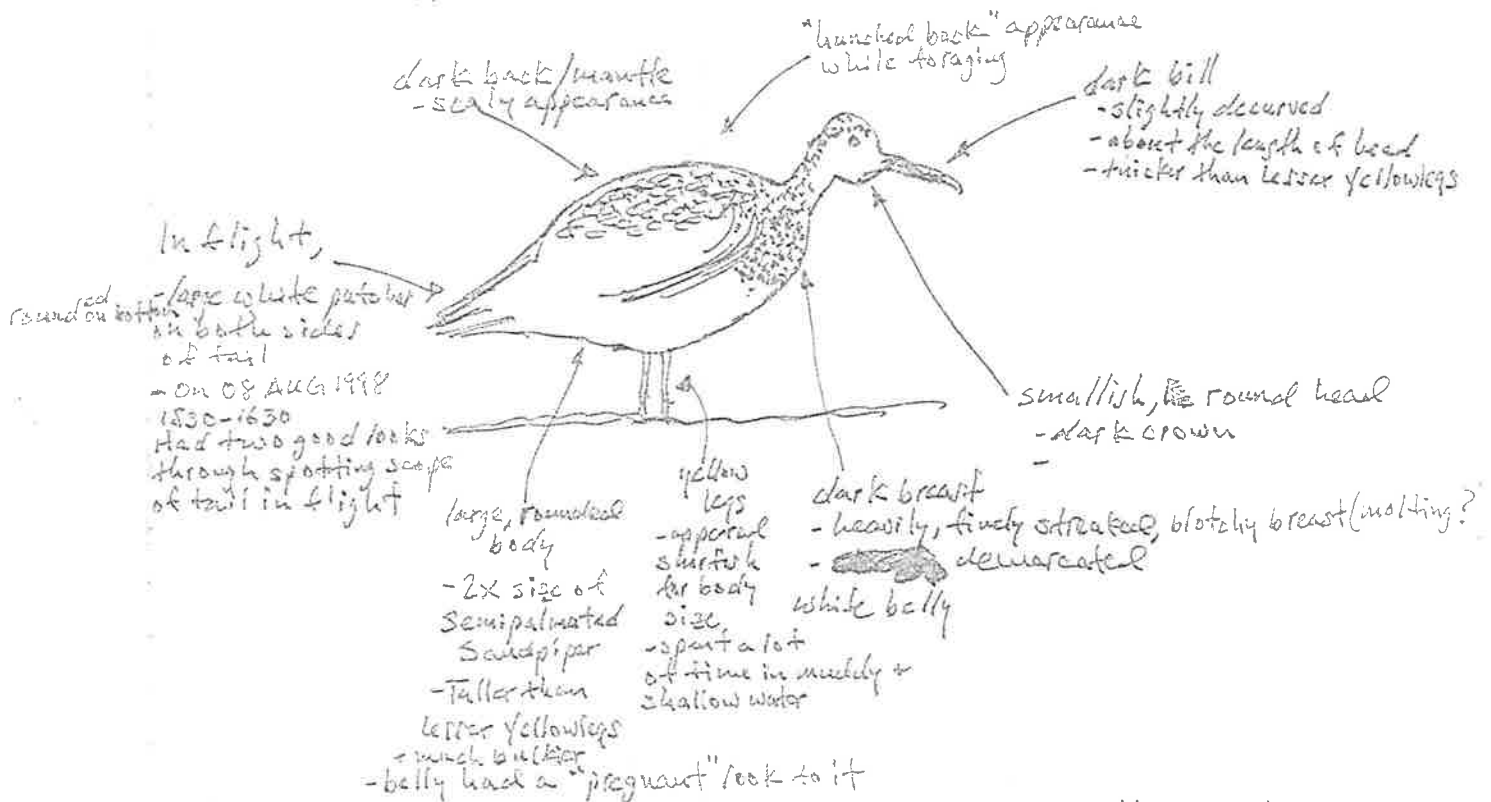 "hunched back" appearance
while foraging
dark back/mantle
- scaly appearance
dark bill
- slightly decurved
- about the length of head
- thicker than lesser yellowlegs
In flight,
- large white patches
on both sides
of tail
rounded on bottom
- On 08 AUG 1998
1530-1630
Had two good looks
through spotting scope
of tail in flight
smallish, round head
- dark crown
-
large, rounded
body
- 2x size of
Semipalmated
Sandpiper
- Taller than
lesser yellowlegs
- much bulkier
- belly had a "pregnant" look to it
yellow
legs
-
for body
size
- spent a lot
of time in muddy +
shallow water
dark breast
- heavily, finely streaked, blotchy breast (molting?
- demarcated
white belly